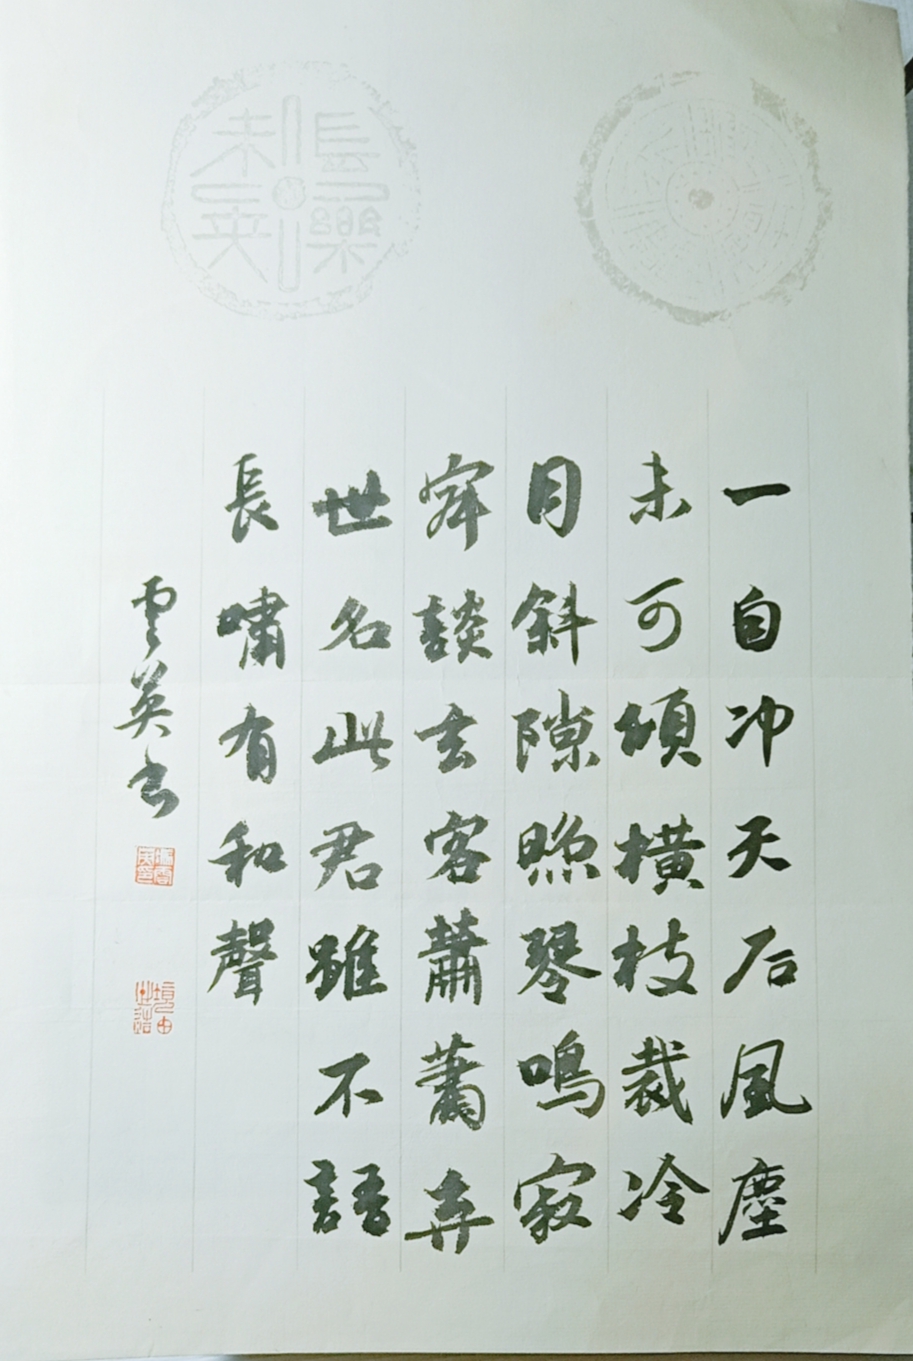 長樂未央
一自冲天后風塵
未可傾橫枝裁冷
月斜隙照琴鳴寂
談玄客蕭蕭弃
世名此君雖不語
長嘯有和聲
雲英书